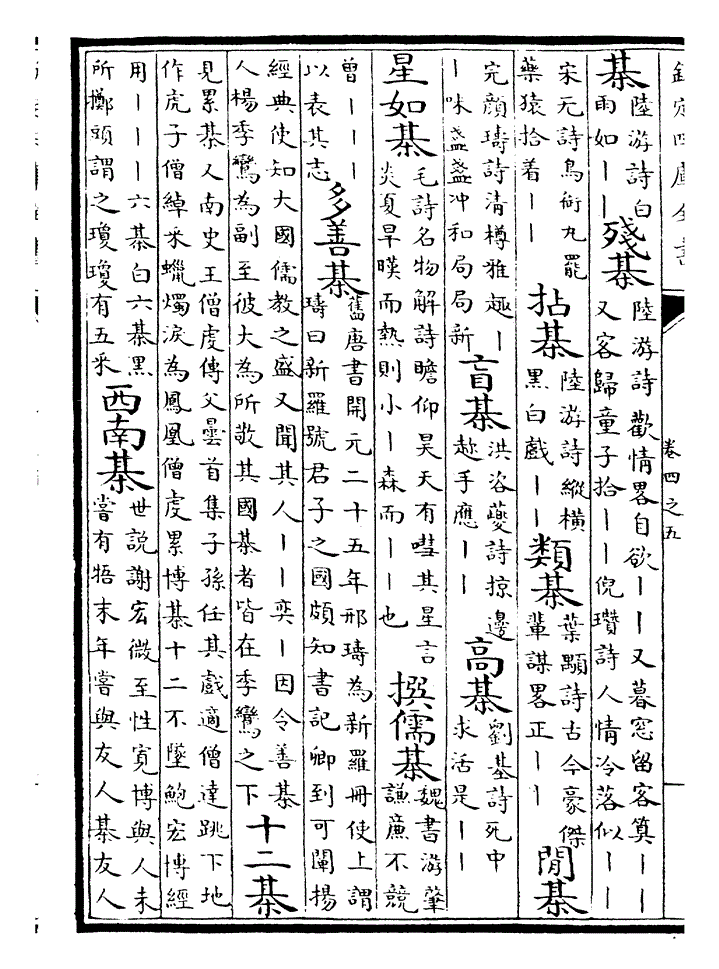 欽定四庫全書
卷四之五
棊陸游詩白雨如｜｜殘棊陸游詩歡情畧自欲｜｜又暮窓留客算｜｜又客歸童子拾｜｜倪瓚詩人情冷落似｜｜
宋元詩鳥銜丸罷藥猿拾着｜｜拈棊陸游詩縱橫黑白戲｜｜類棊葉顒詩古今豪傑輩謀畧正｜｜閒棊
完顔璹詩清樽雅趣｜｜味盎盎冲和局局新盲棊洪咨夔詩掠邊趂手應｜｜高棊劉基詩死中求活是｜｜
星如棊毛詩名物解詩瞻仰昊天有嘒其星言炎夏旱暵而熱則小｜森而｜｜也撰儒棊魏書游肇謙廉不競
曾｜｜｜以表其志多善棊舊唐書開元二十五年邢璹為新羅冊使上謂璹曰新羅號君子之國頗知書記卿到可闡揚
經典使知大國儒教之盛又聞其人｜｜奕｜因令善棊人楊季鸞為副至彼大為所敬其國棊者皆在季鸞之下十二棊
見累棊又南史王僧虔傳父曇首集子孫任其戲適僧達跳下地作虎子僧綽采蠟燭淚為鳳凰僧虔累博棊十二不墜鮑宏博經
用｜｜｜六棊白六棊黑所擲頭謂之瓊瓊有五采西南棊世説謝宏微至性寛博與人未嘗有牾末年嘗與友人棊友人